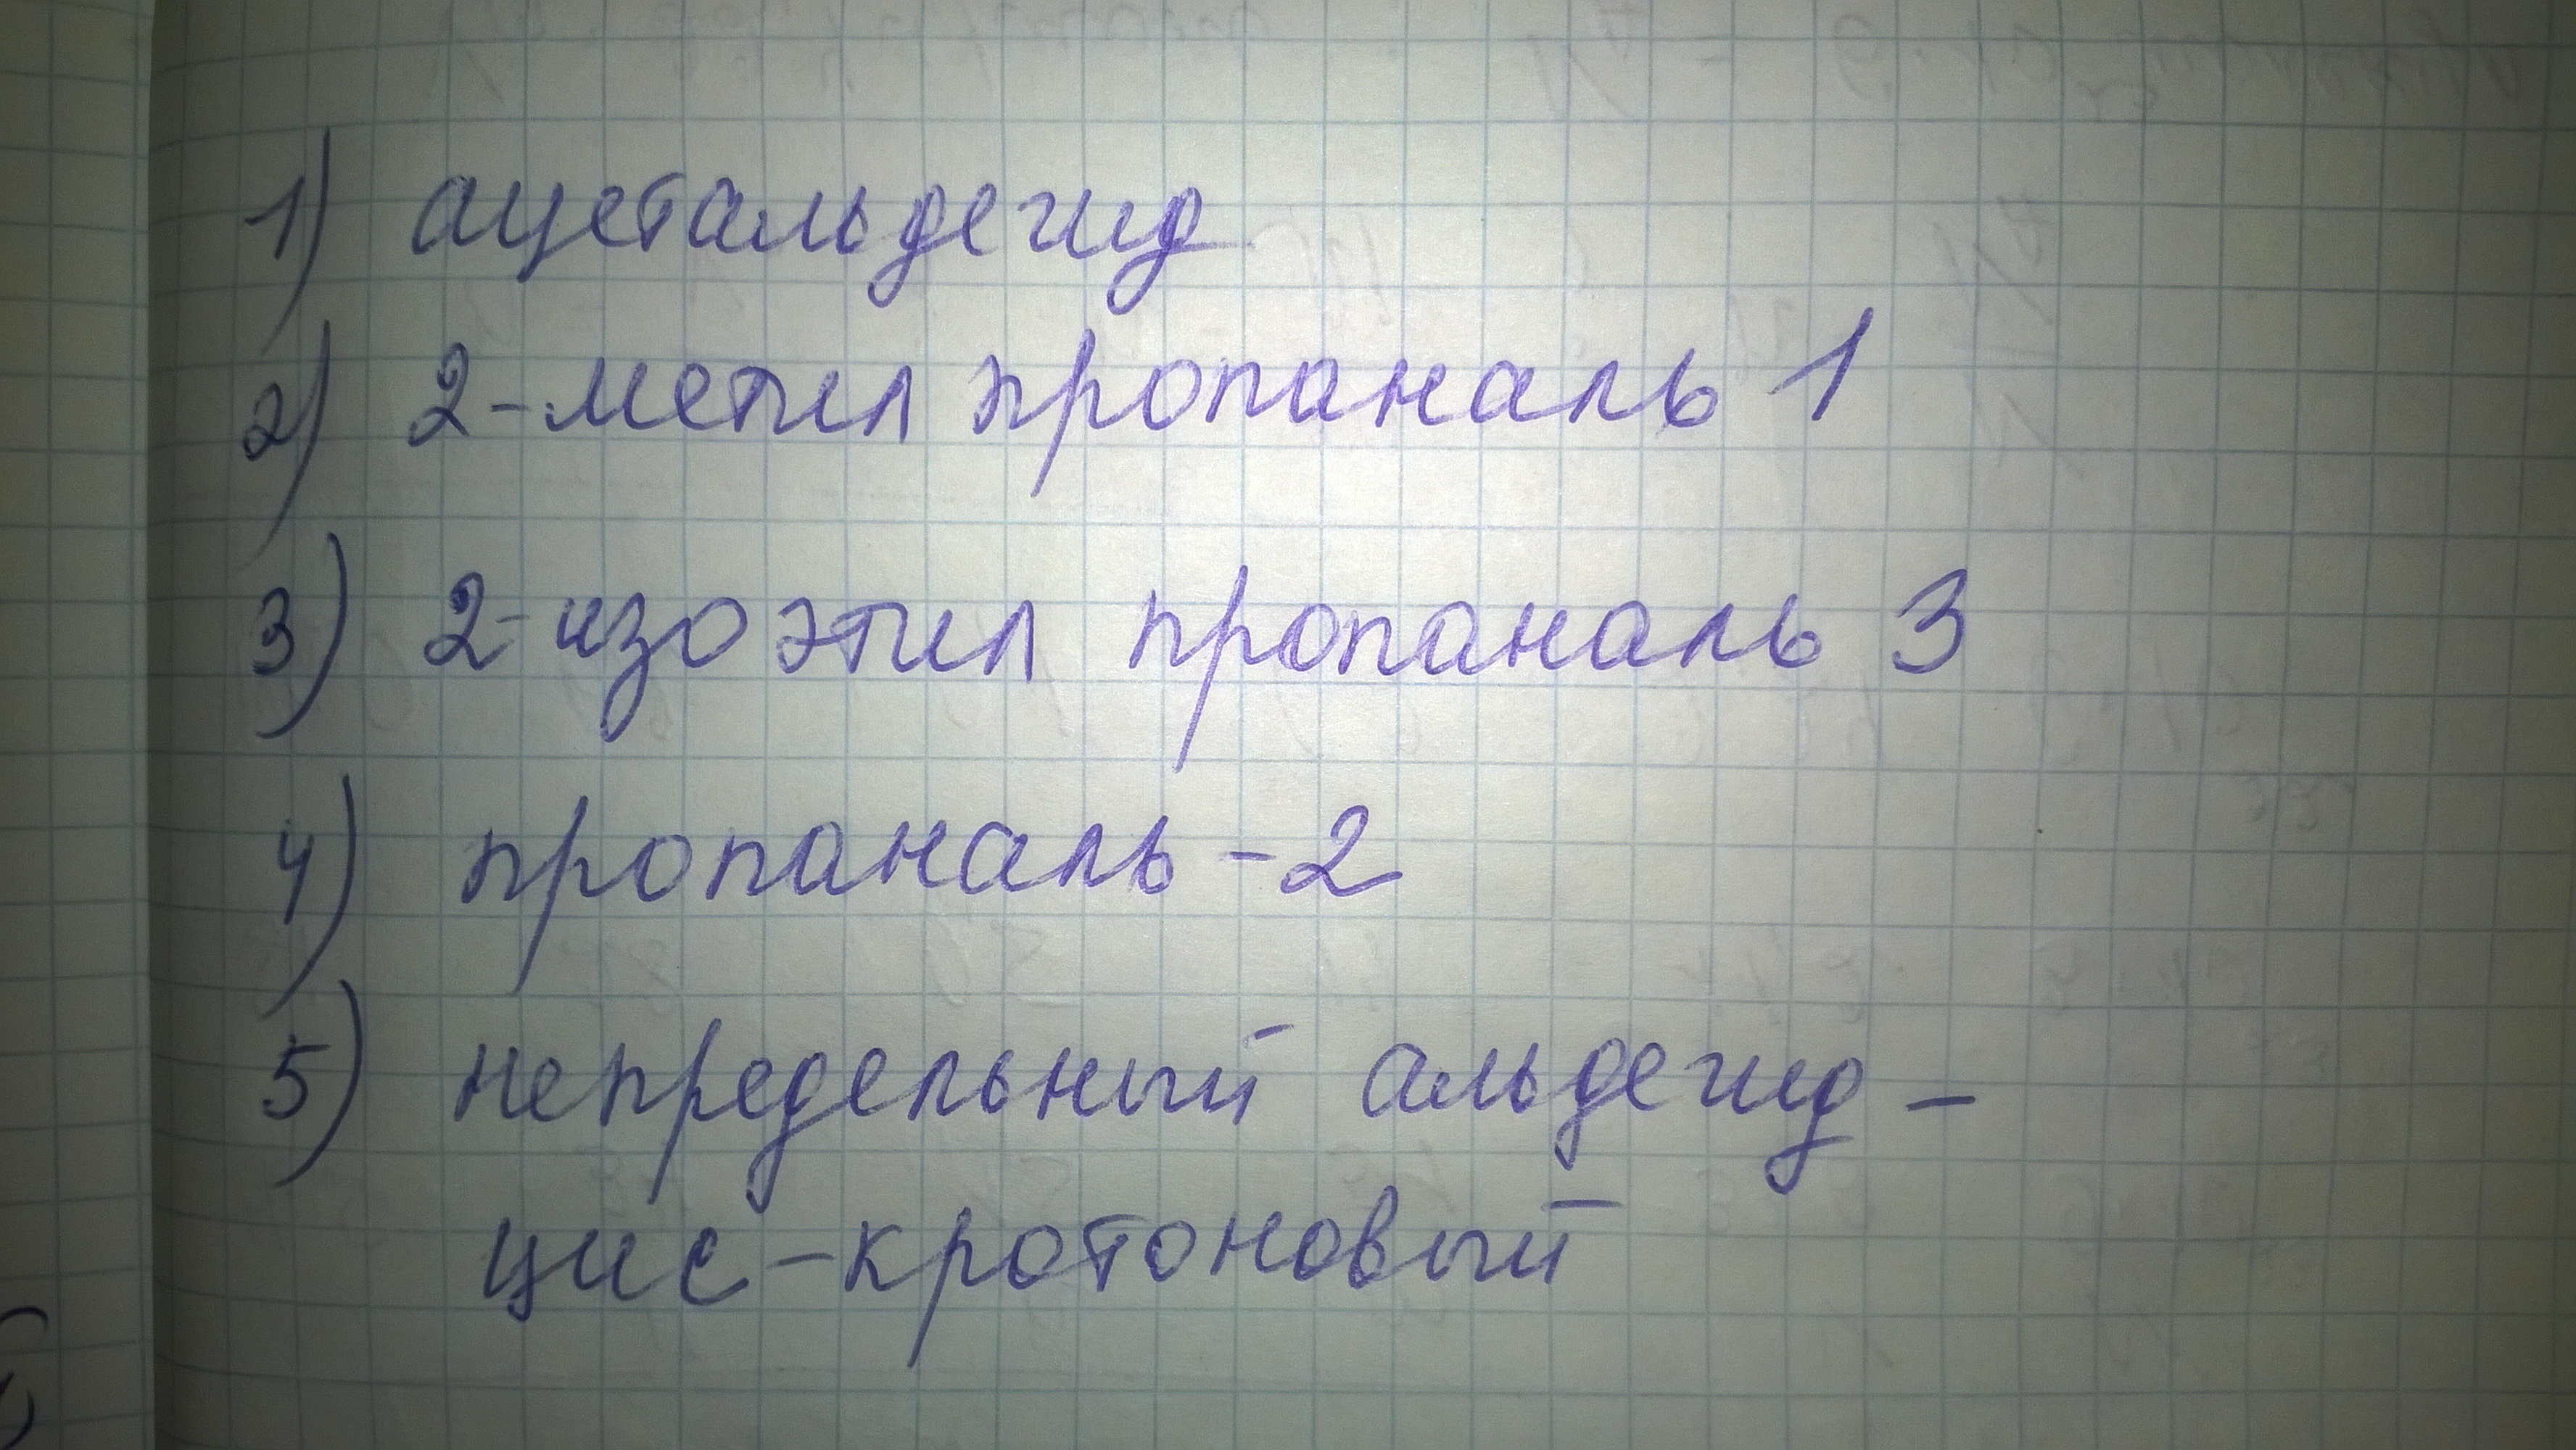 1) ацетальдегид
2) 2-метил пропаналь 1
3) 2-изоэтил пропаналь 3
4) пропаналь-2
5) непредельный альдегид-
цис-кротоновый